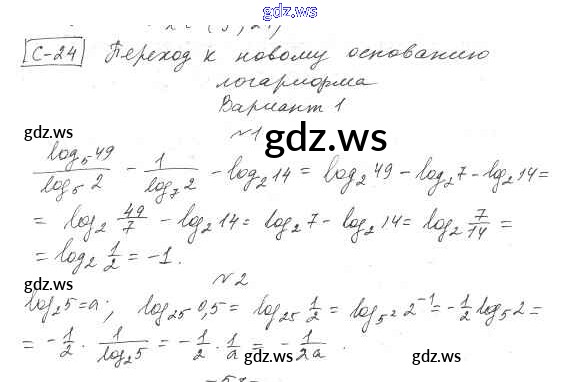 gdz.ws
С-24 Переход к новому основанию
логарифма
Вариант 1
gdz.ws
№1
gdz.ws
gdz.ws
log₅49/log₅2 - 1/log₇2 - log₂14 = log₂49 - log₂7 - log₂14 =
= log₂ 49/7 - log₂14 = log₂7 - log₂14 = log₂ 7/14 =
= log₂ 1/2 = -1.
gdz.ws
gdz.ws
№2
log₂5 = a; log₂₅ 0,5 = log₂₅ 1/2 = log₅² 2⁻¹ = -1/2 log₅2 =
= -1/2 · 1/log₂5 = -1/2 · 1/a = -1/2a.
gdz.ws
gdz.ws